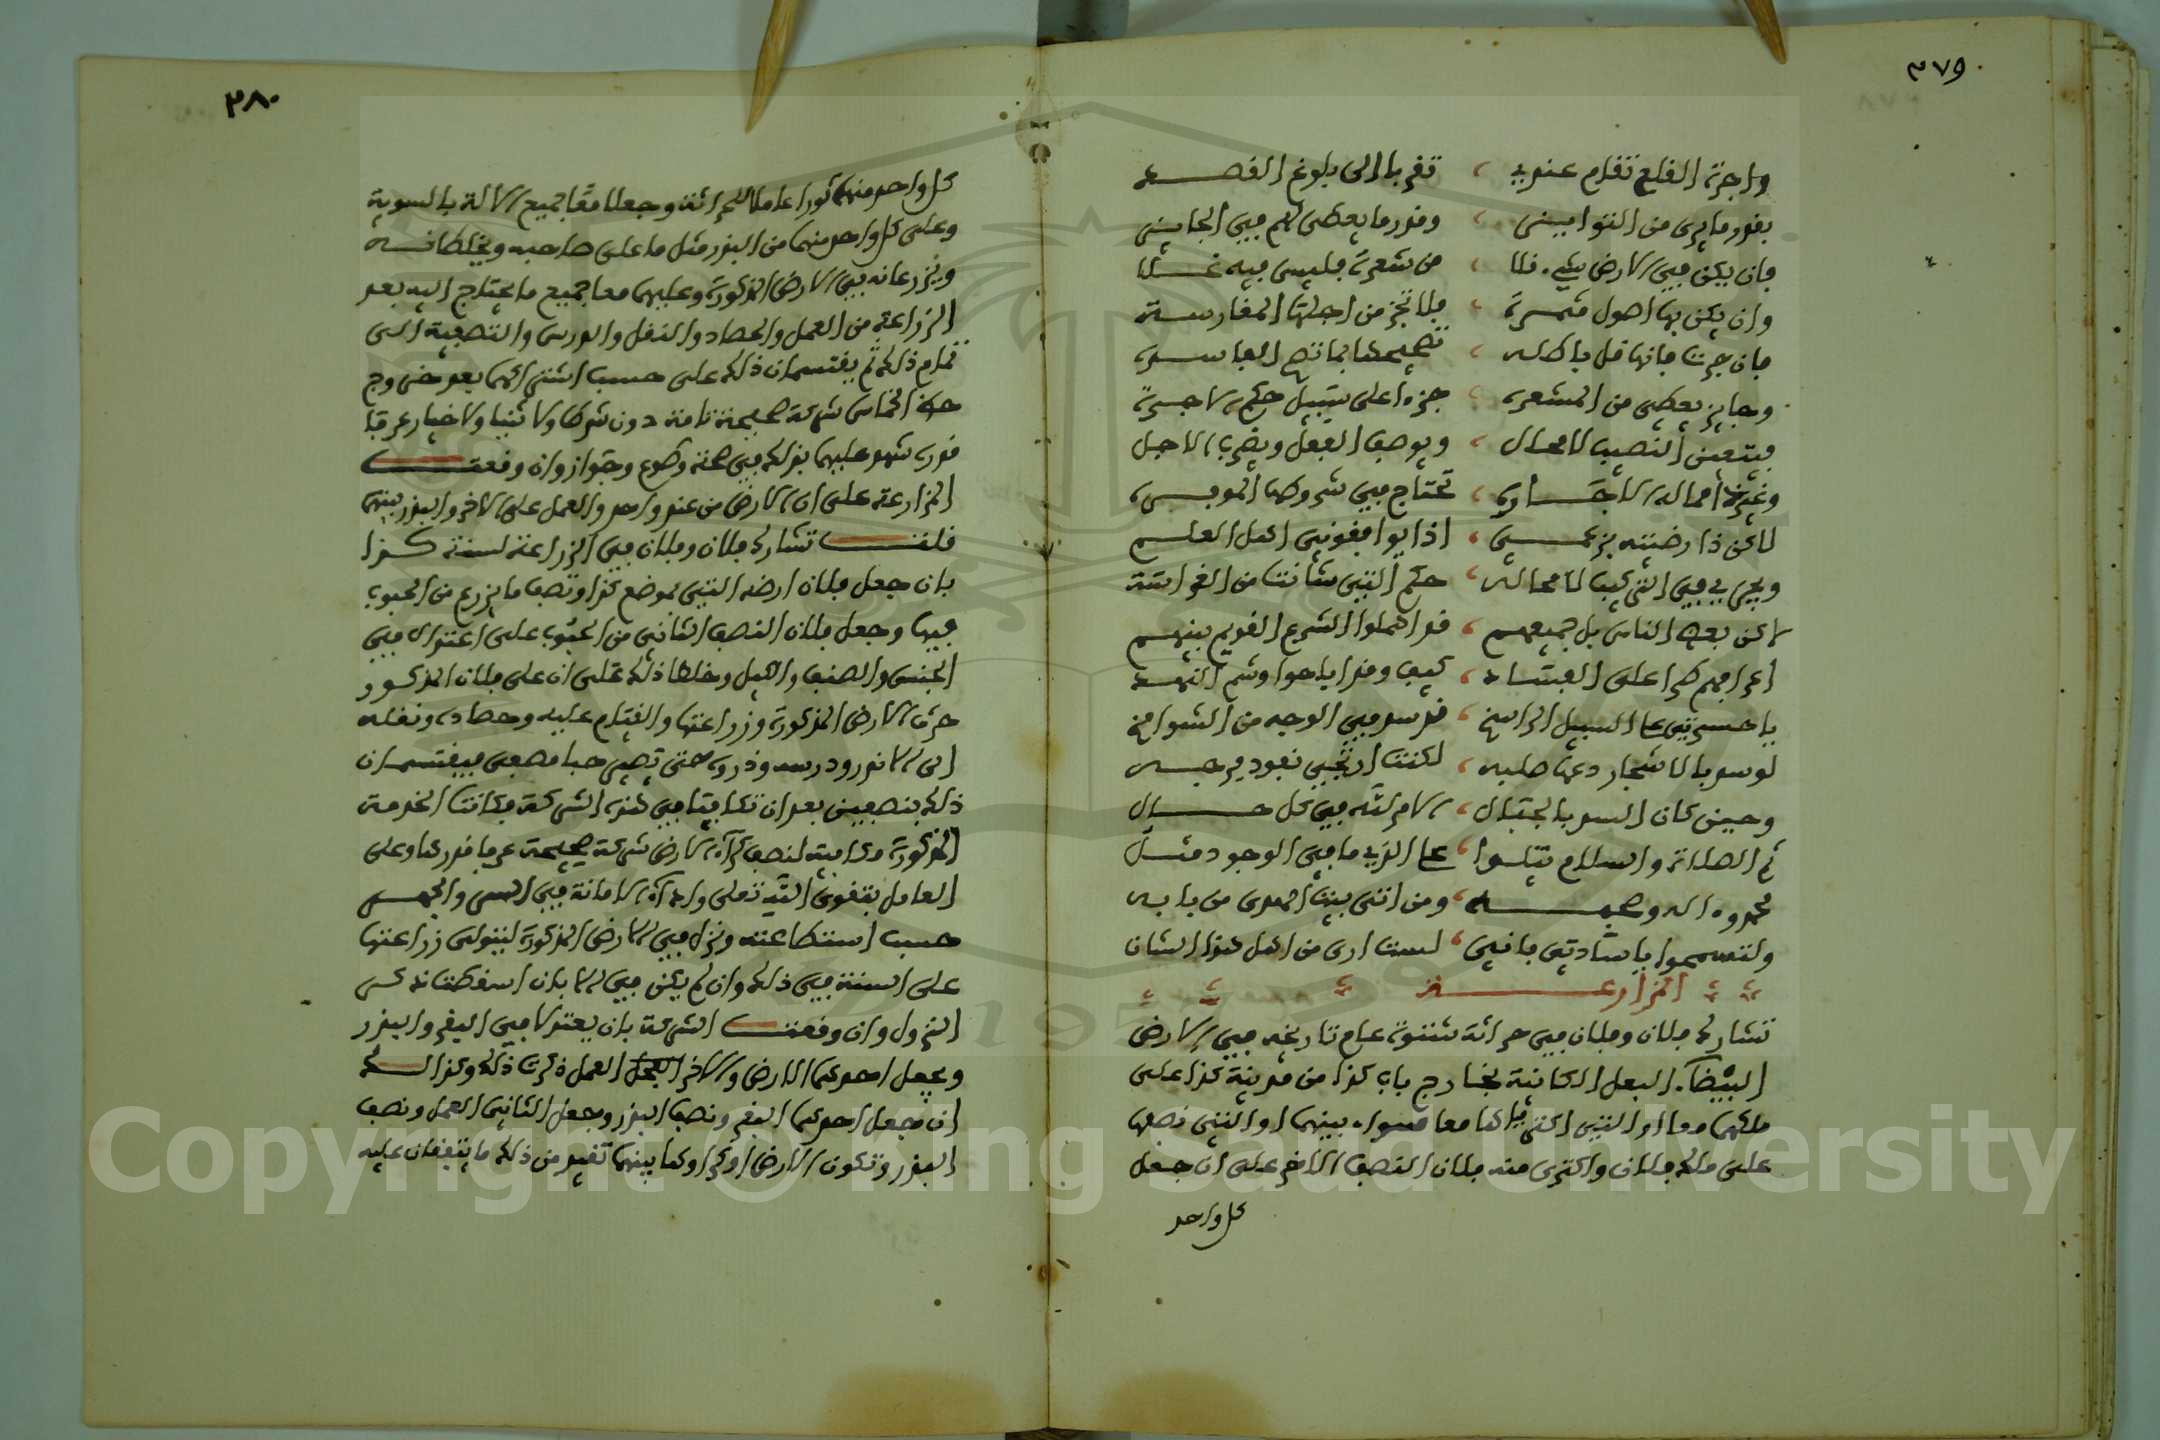 ٣٧٩
واجرة القلع تقام عندي ، تقربا الى بلوغ القصد
بقدر ما يرى من النوا بينى ، وقدر ما يعطى لهم في الجانبين
فان يكن في الارض شيء فلا ، من شعرة فليس فيه
وان يكن بها اصول مثمرة ، فلا تجز من اجلها المغارسة
فان جرت فانها قل باطله ، تصحيحها بما تصح الفاسدة
وجايز يعطى من المشعرة ، جزءا على سبيل حكم الاجرة
فيتعين النصيب لا محال ، ويوصف الفعل ويضرب الاجل
تحتاج في شروطها
لاكن ذا رضيته بزعمي ، اذا يوافقوني اهل العلم
ويجري في التركيب لا محاله ، حكم التي شانت من الغراسة
لاكن بعض الناس بل جميعهم ، قد اهملوا الشرع القويم بينهم
اعرافهم طرا على الفساد ، كيف وقد اباحوا وشم النهد
يا حسرتي على السبيل الراسخ ، قد سد في الوجه من الشوامخ
لو سد بالاشجار دعها صلبه ، لكنت ارتجي نعود
وحين كان السد بالجبال ، الامر لله في كل حال
ثم الصلاة والسلام يتلوا ، على الذي ما في الوجود مثل
محمد وءاله وصحبه ، ومن اتى بيت الهدى من بابه
ولتسمحوا يا سادتي فانى ، لست ارى من اهل هذا الشان
المزارعة
تشارك فلان وفلان في حراثة شتوة عام تاريخه في الارض
البيضاء البعل الكائنة بخارج باب كذا من مدينة كذا على
ملكهما معا او التي اكترياها معا سواء بينهما او التي نصفها
على ملك فلان واكترى منه فلان النصف الاخر على ان جعل
كل واحد
٣٨٠
كل واحد منهما ثورا عاملا للحراثة وجعلا معا جميع الالة بالسوية
وعلى كل واحد منهما من البذر مثل ما على صاحبه ويخلطانه
ويزرعانه في الارض المذكورة وعليهما معا جميع ما يحتاج اليه بعد
الزراعة من العمل والحصاد والنقل والدرس والتصفية الى
تمام ذلك ثم يقتسمان ذلك على حسب اشتراكهما بعد خروج
حظ الخماس شركة صحيحة تامة دون شرط ولا ثنيا ولا خيار عرفا
قدره شهد عليهما بذلك في صحة وطوع وجواز وان وقعت
المزارعة على ان الارض من عند واحد والعمل على الاخر والبذر بينهما
قلت تشارك فلان وفلان في الزراعة لسنة كذا
بان جعل فلان ارضه التي بموضع كذا ونصف ما يزرع من الحبوب
فيها وجعل فلان النصف الثاني من الحبوب على اعتدال في
الجنس والصنف والكيل وخلطا ذلك على ان على فلان المذكور
حرث الارض المذكورة وزراعتها والقيام عليه وحصاده ونقله
الى الاندر ودرسه وذروه حتى يصير حبا مصفى فيقتسمان
ذلك بنصفين بعد ان تكافيا في هذه الشركة فكانت الخدمة
المذكورة مكافية لنصف كراء الارض شركة صحيحة عرفا قدرها وعلى
العامل بتقوى الله تعلى واداء الامانة في السر والجهر
حسب استطاعته ونزل في الارض المذكورة ليتولى زراعتها
على السنة في ذلك وان لم يكن في الابان اسقطت ذكر
النزول وان وقعت الشركة بان يعتدلا في البقر والبذر
ويجعل احدهما الارض والاخر العمل ذكرت ذلك وكذلك
ان جعل احدهما البقر ونصف البذر وجعل الثاني العمل ونصف
البذر وتكون الارض او كراؤها بينهما تقيد من ذلك ما يتفقان عليه
Copyright © King Saud University